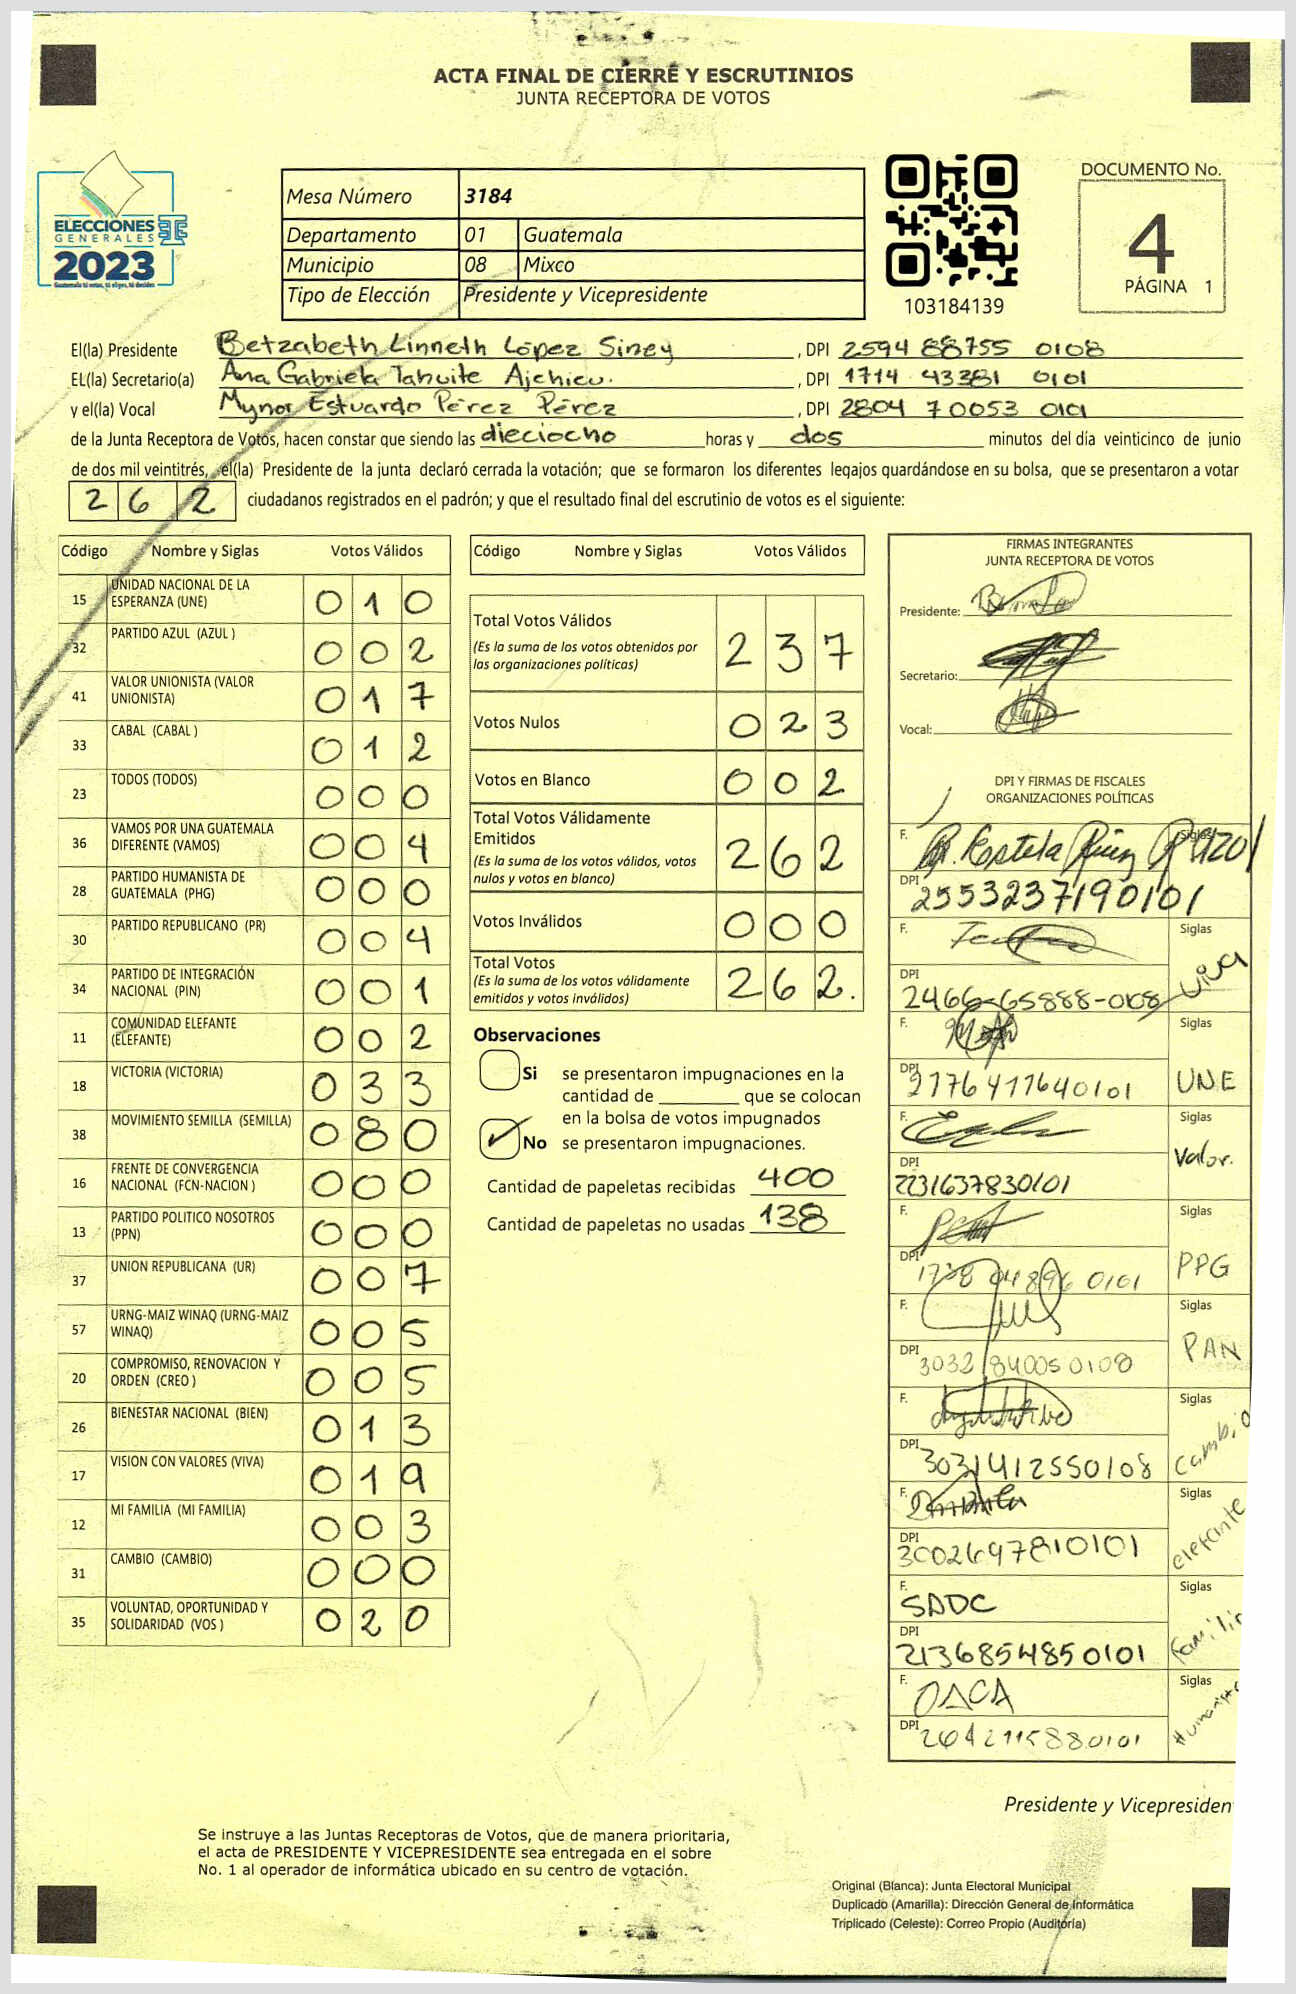 ACTA FINAL DE CIERRE Y ESCRUTINIOS
JUNTA RECEPTORA DE VOTOS
ELECCIONES
GENERALES
2023
Guatemala tú votas, tú eliges, tú decides
Mesa Número 3184
Departamento 01 Guatemala
Municipio 08 Mixco
Tipo de Elección Presidente y Vicepresidente
103184139
DOCUMENTO No.
4
PÁGINA 1
El(la) Presidente Betzabeth Linneth López Siney, DPI 2594 88755 0108
EL(la) Secretario(a) Ana Gabriela Tahuite Ajchicu., DPI 1714 43381 0101
y el(la) Vocal Mynor Estuardo Pérez Pérez, DPI 2804 70053 0101
de la Junta Receptora de Votos, hacen constar que siendo las dieciocho horas y dos minutos del día veinticinco de junio
de dos mil veintitrés, el(la) Presidente de la junta declaró cerrada la votación; que se formaron los diferentes legajos guardándose en su bolsa, que se presentaron a votar
262 ciudadanos registrados en el padrón; y que el resultado final del escrutinio de votos es el siguiente:
Código Nombre y Siglas Votos Válidos
15 UNIDAD NACIONAL DE LA ESPERANZA (UNE) 010
32 PARTIDO AZUL (AZUL ) 002
41 VALOR UNIONISTA (VALOR UNIONISTA) 017
33 CABAL (CABAL ) 012
23 TODOS (TODOS) 000
36 VAMOS POR UNA GUATEMALA DIFERENTE (VAMOS) 004
28 PARTIDO HUMANISTA DE GUATEMALA (PHG) 000
30 PARTIDO REPUBLICANO (PR) 004
34 PARTIDO DE INTEGRACIÓN NACIONAL (PIN) 001
11 COMUNIDAD ELEFANTE (ELEFANTE) 002
18 VICTORIA (VICTORIA) 033
38 MOVIMIENTO SEMILLA (SEMILLA) 080
16 FRENTE DE CONVERGENCIA NACIONAL (FCN-NACION ) 000
13 PARTIDO POLITICO NOSOTROS (PPN) 000
37 UNION REPUBLICANA (UR) 007
57 URNG-MAIZ WINAQ (URNG-MAIZ WINAQ) 005
20 COMPROMISO, RENOVACION Y ORDEN (CREO ) 005
26 BIENESTAR NACIONAL (BIEN) 013
17 VISION CON VALORES (VIVA) 019
12 MI FAMILIA (MI FAMILIA) 003
31 CAMBIO (CAMBIO) 000
35 VOLUNTAD, OPORTUNIDAD Y SOLIDARIDAD (VOS ) 020
Código Nombre y Siglas Votos Válidos
Total Votos Válidos 237
(Es la suma de los votos obtenidos por
las organizaciones políticas)
Votos Nulos 023
Votos en Blanco 002
Total Votos Válidamente Emitidos 262
(Es la suma de los votos válidos, votos
nulos y votos en blanco)
Votos Inválidos 000
Total Votos 262.
(Es la suma de los votos válidamente
emitidos y votos inválidos)
Observaciones
Si se presentaron impugnaciones en la
cantidad de ________ que se colocan
en la bolsa de votos impugnados
No se presentaron impugnaciones.
Cantidad de papeletas recibidas 400
Cantidad de papeletas no usadas 138
FIRMAS INTEGRANTES
JUNTA RECEPTORA DE VOTOS
Presidente:
Secretario:
Vocal:
DPI Y FIRMAS DE FISCALES
ORGANIZACIONES POLÍTICAS
F. Estela Siglas
DPI 2553237190101
F. Siglas
DPI 2466-65888-0108 Viva
F. Siglas
DPI 2776477640101 UNE
F. Siglas
DPI 2231637830101 Valor.
F. Siglas
DPI 1738 0101 PPG
F. Siglas
DPI 3032 84005 0108 PAN
F. Siglas
DPI 3031412550108 Cambio
F. Siglas
DPI 3002697810101 elefante
F. SADC Siglas
DPI 2136854850101 Familia
F. OACA Siglas
DPI Humanista
Presidente y Vicepresiden
Se instruye a las Juntas Receptoras de Votos, que de manera prioritaria,
el acta de PRESIDENTE Y VICEPRESIDENTE sea entregada en el sobre
No. 1 al operador de informática ubicado en su centro de votación.
Original (Blanca): Junta Electoral Municipal
Duplicado (Amarilla): Dirección General de Informática
Triplicado (Celeste): Correo Propio (Auditoría)